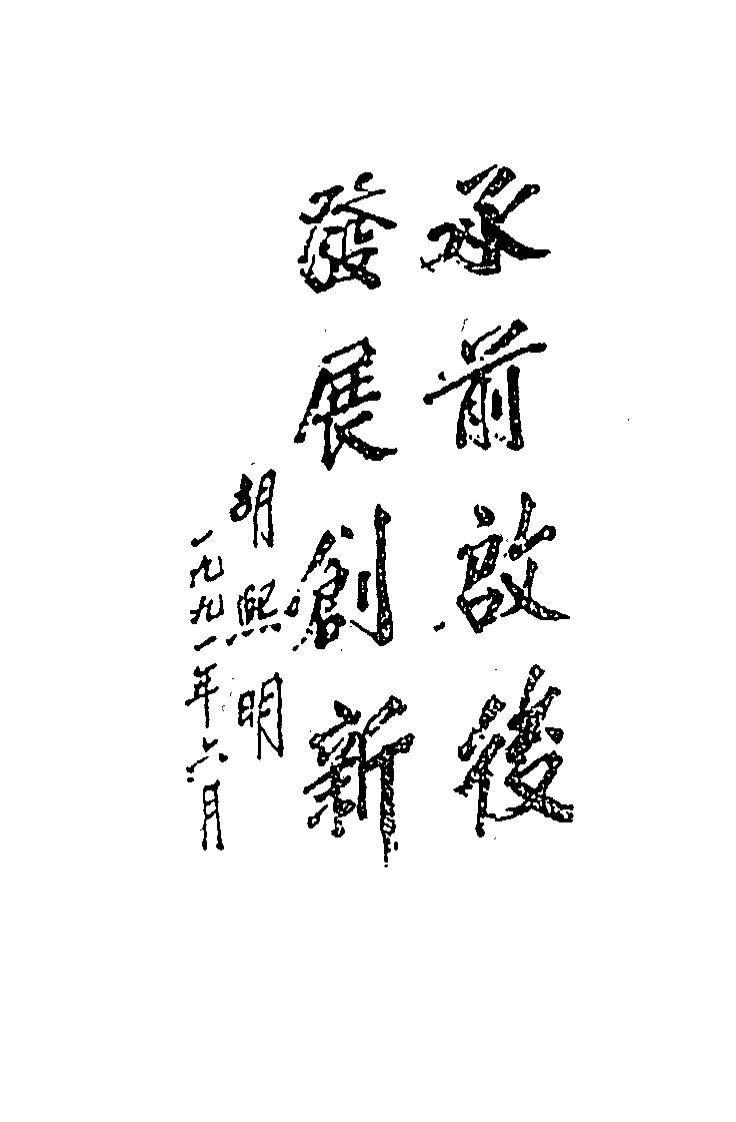 承前啟後
發展創新
胡熙明
一九九一年六月